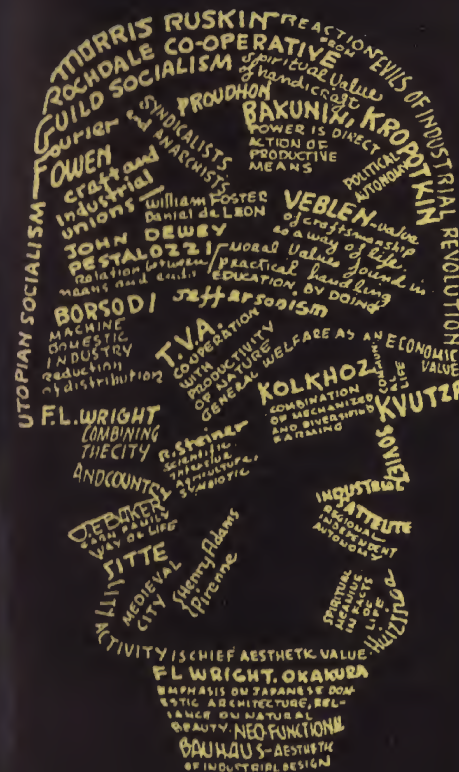 MORRIS RUSKIN REACTION FROM EVILS OF INDUSTRIAL REVOLUTION
ROCHDALE CO-OPERATIVE
GUILD SOCIALISM
Spiritual Value
of handicraft
UTOPIAN SOCIALISM
Fourier
OWEN
craft and
industrial
unions
SYNDICALISTS
and ANARCHISTS
PROUDHON
BAKUNIN, KROPOTKIN
POWER IS DIRECT
ACTION OF
PRODUCTIVE
MEANS
POLITICAL
AUTONOMY
William FOSTER
Daniel de LEON
VEBLEN-value
of craftsmanship
as a way of life.
JOHN DEWEY
PESTALOZZI
Relation between
means and ends.
Moral values found in
practical handling
EDUCATION, BY DOING
BORSODI
MACHINE
DOMESTIC
INDUSTRY
reduction
of distribution
Jeffersonism
T.V.A.
CO-OPERATION
WITH
PRODUCTIVITY
OF NATURE
GENERAL WELFARE AS AN ECONOMIC
VALUE
KOLKHOZ
COMBINATION
OF MECHANIZED
AND DIVERSIFIED
FARMING
KVUTZA
LIFE
SOVIET
F.L.WRIGHT
COMBINING
THE CITY
AND COUNTRY
R. Steiner
SCIENTIFIC
INTENSIVE
AGRICULTURE,
SYMBIOTIC
INDUSTRIES
SATTELITE
REGIONAL
INDEPENDENT
AUTONOMY
WAY OF LIFE
SITTE
MEDIEVAL
CITY
Henry Adams
Pirenne
SPIRITUAL
MEANING
IN FACTS
OF
LIFE
Huizinga
ACTIVITY IS CHIEF AESTHETIC VALUE.
FL WRIGHT, OKAKURA
EMPHASIS ON JAPANESE DOM-
ESTIC ARCHITECTURE, REL-
IANCE ON NATURAL
BEAUTY. NEO-FUNCTIONAL
BAUHAUS-AESTHETIC
OF INDUSTRIAL DESIGN